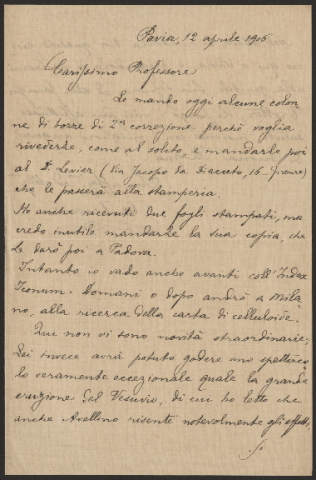 Pavia, 12 aprile 1906
Carissimo Professore,
Le mando oggi alcune colon-
ne di torse di 2ª correzione perchè voglia
rivederle, come al solito, e mandarle poi
al D. Levier (Via Jacopo da Diacceto, 16 - Firenze)
che le passerà alla stamperia.
Ho anche ricevuti due fogli stampati, ma
credo inutile mandarle la sua copia, che
Le darò poi a Padova.
Intanto io vado anche avanti coll' Index
Iconum. Domani o dopo andrò a Mila-
no, alla ricerca della carta di celluloide.
Qui non vi sono novità straordinarie;
Lei invece avrà potuto godere uno spettaco-
lo veramente eccezionale quale la grande
eruzione del Vesuvio, di cui ho letto che
anche Avellino risente notevolmente gli effetti.